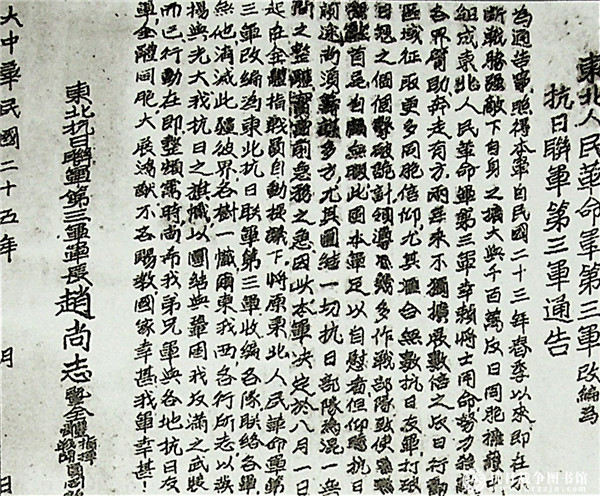 東北人民革命軍第三軍改編為
抗日聯軍第三軍通告
為通告事照得本軍自民國二十三年春季以來即在
斷戰勝强敵下自身之擴大與千百萬反日同胞擁護
組成東北人民革命軍第三軍幸賴將士用命努力殺
各界幫助奔走有方兩年來不獨擴展數倍之反日行動
區域征取更多同胞信仰尤其滙合無數抗日友軍打破
日冠之個個擊破詭計領導
首足自本軍足以自慰者但仰瞻抗日
前途尚須多方尤其團結一切抗日部隊為混一
間之整體當前急務之急因此本軍決定於八月一日
起在全體指戰員自動提議下將原東北人民革命軍第
三軍改編為東北抗日聯軍第三軍收編各隊聯絡各軍
終他消滅此疆彼界各樹一幟爾東我西各行所志以發
揚與光大我抗日之旗幟以團結與鞏固我反滿之武裝
而已行動在即整頓需時尚希我弟兄軍與各地抗日友
軍金融同胞大展鴻猷不吝賜教國家幸甚我軍幸甚！
東北抗日聯軍第三軍軍長趙尚志暨全體指揮戰鬥員同啟
大中華民國二十五年 月 日
抗日战争图书馆